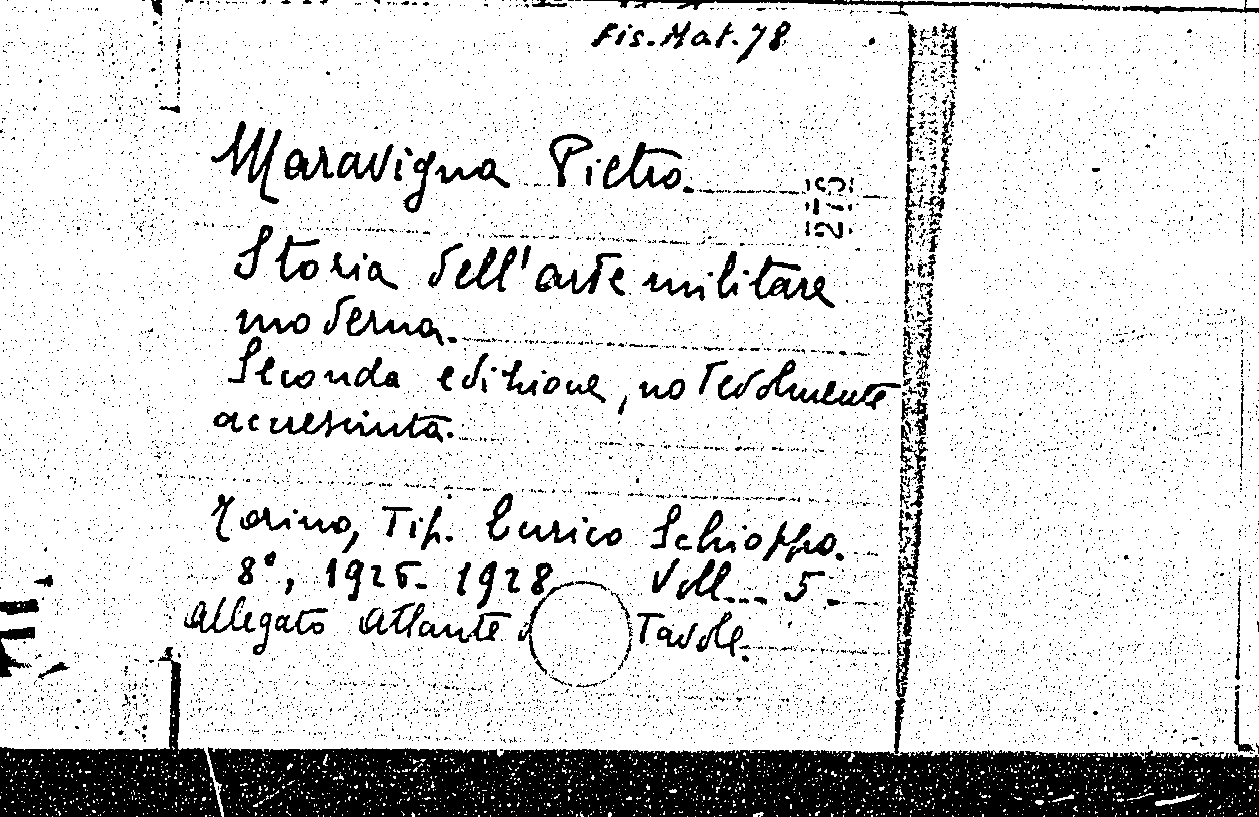 Fis. Mat. 78
Maravigna Pietro.
Storia dell'arte militare
moderna.
Seconda edizione, notevolmente
accresciuta.
Torino, Tip. Enrico Schioppo.
8°, 1926-1928 Voll. 5.
Allegato Atlante Tavole.